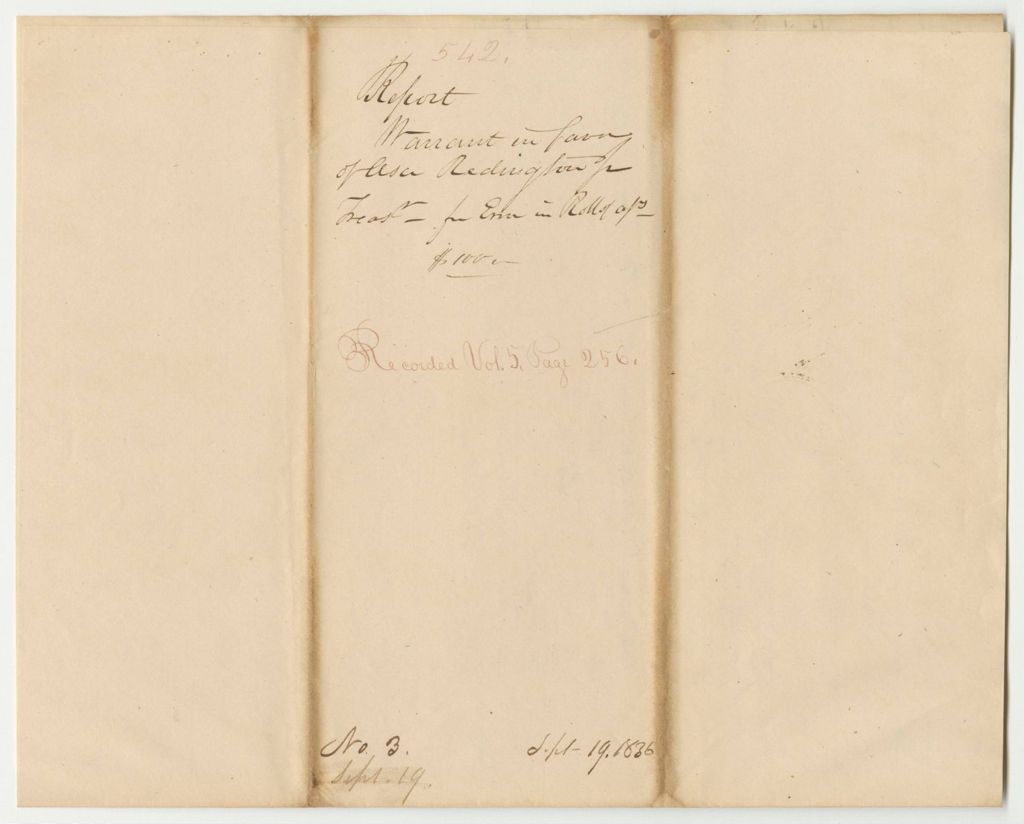 542.
Report
Warrant in favor
of Asa Redington Jr
Treasr — for Error in Roll of a/cs
$100 —
Recorded Vol. 5, Page 256.
No. 3. Sept. 19. 1836
Sept. 19.